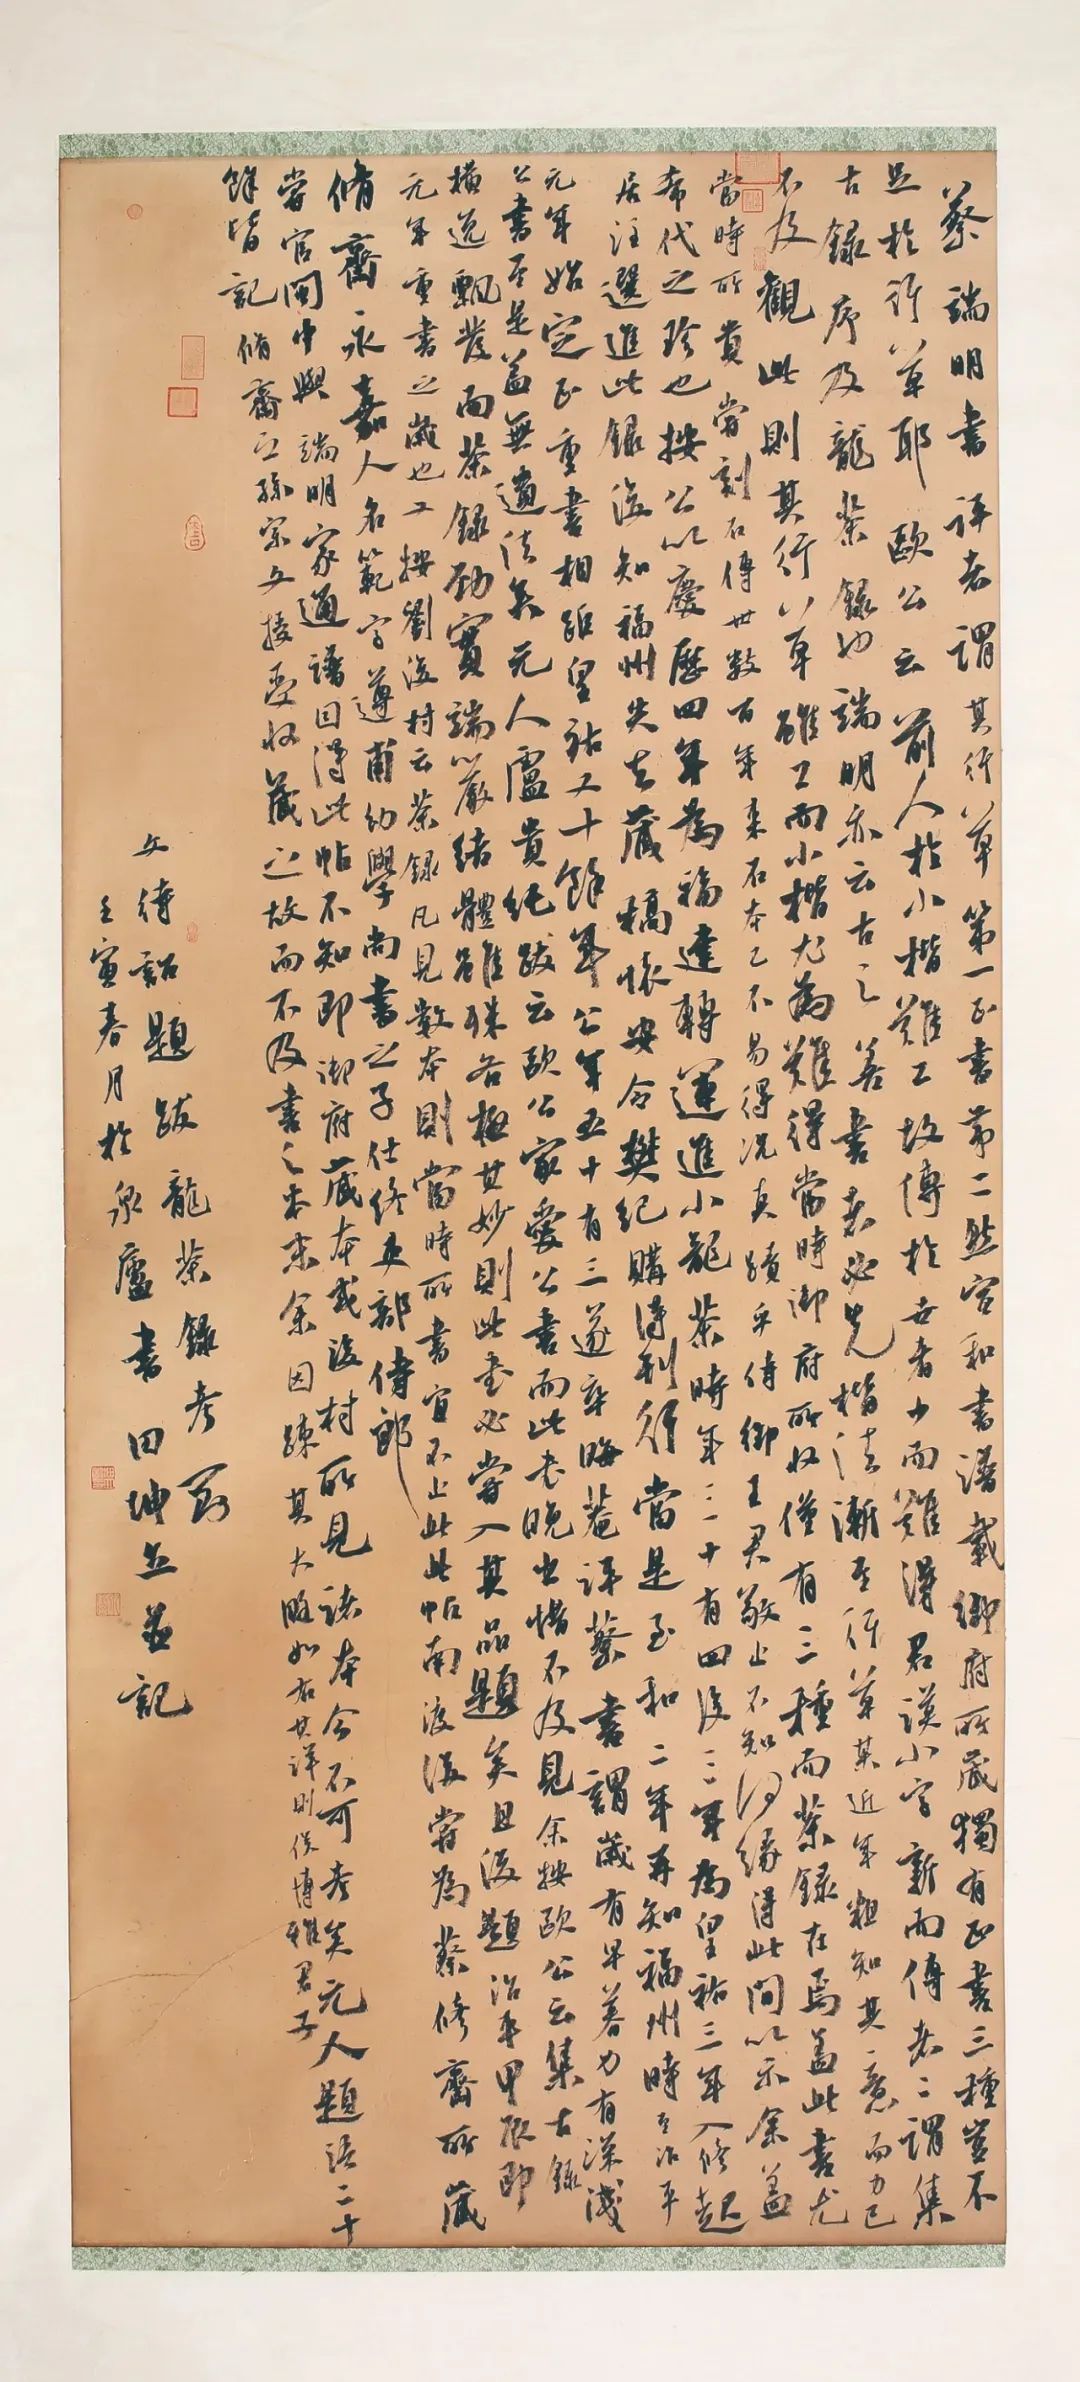 蔡端明書評者謂其行草第一正書第二然宣和書譜載御府所藏獨有正書三種豈不
足於行草耶歐公云前人於小楷難工故傳於世者少而難得君謨小字新而傳者二謂集
古錄序及龍茶錄也端明亦云古之善書者必先楷法漸至行草某近年粗知其意而力已
不及觀此則其行草雖工而小楷尤為難得當時御府所收僅有三種而茶錄在焉蓋此書尤
當時所貴嘗刻石傳世數百年來石本已不易得況真蹟乎侍御王君敬止不知何緣得此間以示余蓋
希代之珍也按公以慶歷四年為福建轉運進小龍茶時年三十有四後三年為皇祐三年入修起
居注選進此錄後知福州失去藏稿懷安令樊紀購得刊行當是至和二年再知福州時至治平
元年始定正重書相距皇祐又十餘年公年五十有三遂卒晦菴評蔡書謂歲有早暮力有深淺
公書至是蓋無遺法矣元人盧貴純跋云歐公家愛公書而此書晚出惜不及見余按歐公云集古錄
橫逸飄發而茶錄勁實端嚴結體雖殊各極其妙則此書必嘗入其品題矣且後題治平甲辰即
元年重書之歲也又按劉後村云茶錄凡見數本則當時所書宜不止此此帖南渡後嘗為蔡修齋所藏
脩齋永嘉人名範字遵甫幼學尚書之子仕終吏部侍郎
嘗官閩中與端明家通譜因得此帖不知即御府藏本或後村所見諸本今不可考矣元人題語二十
餘皆記脩齋之孫宗文接受收藏之故而不及書之本末余因疎其大略如右其詳則俟博雅君子
文待詔題跋龍茶錄考
壬寅春月於泉廬書田坤立並記